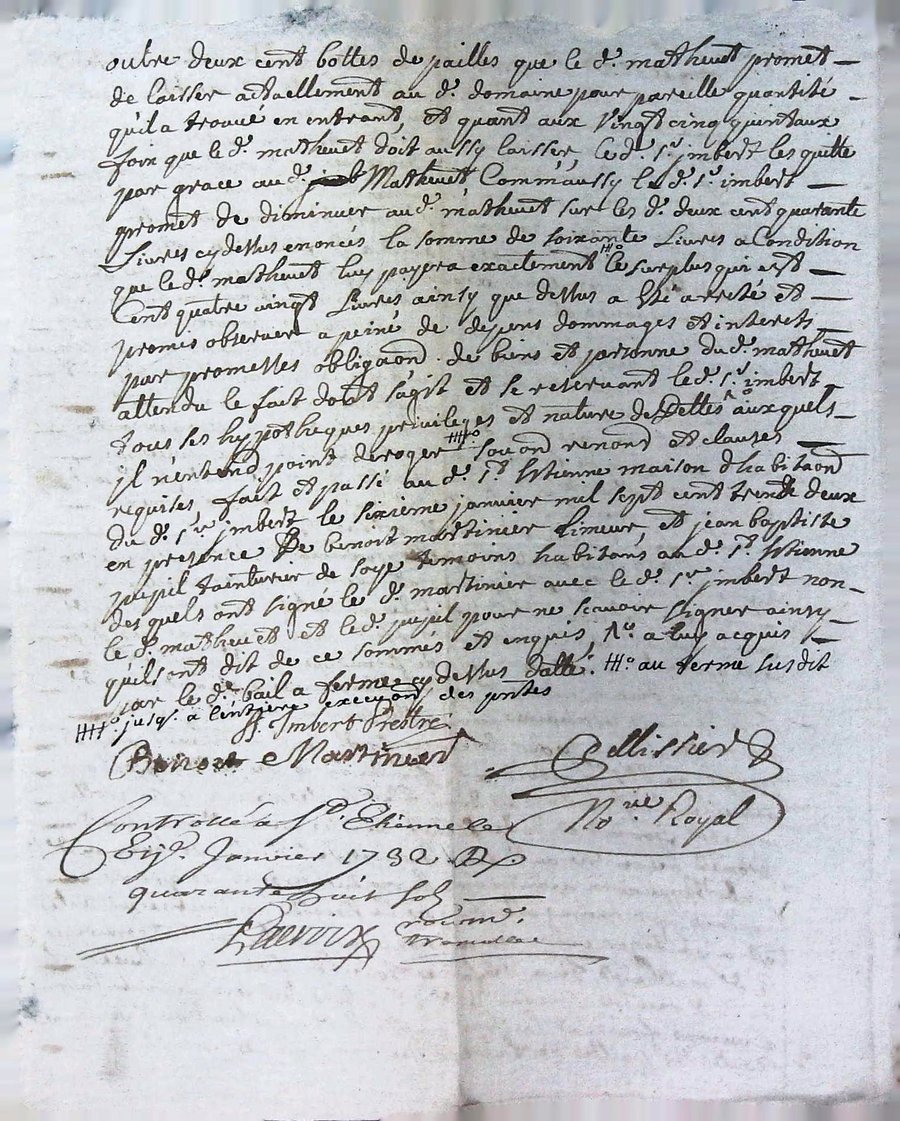 outre deux cent bottes de pailles que le d.^t mathevet promet –
de laisser actuellement au d.^t domaine pour pareille quantité –
qu'il a trouvé en entrant, et quant aux vingt cinq quintaux
foix que le d.^t mathevet doit aussy laisser, le d.^t s.^r jmbert les quitte
par grace au d.^t Mathevet, Comm'aussy le d.^t s.^r imbert –
promet de diminuer au d.^t mathevet sur les d.^t deux cent quarante
Livres cy dessus enoncés la somme de soixante Livres a Condition
que le d.^t mathevet luy payera exactement ^{#°} le surplus qui est –
Cent quatre vingt Livres ainsy que dessus a été arreté et –
promis observer a peine de depens dommages et interets –
par promesses obligaõn de biens et personne du d.^t mathevet
attendu le fait dont s'agit et se reservant le d.^t s.^r imbert
tous ses hypotheques privileges et nature de dettes ^{1°} auxquels –
jl n'entend point deroger ^{##°} soûon renonõn et clauses –
requises, fait et passé au d.^t s.^t Estienne maison d'habitaõn
du d.^t s.^r jmbert le sixieme janvier mil sept cent trente deux
en presence De benoit martinier Limeur, et jean baptiste
pupil tainturier de soye temoins habitans au d.^t s.^t Estienne
desquels ont signé le d.^t martinier avec le d.^t s.^r jmbert non –
le d.^t mathevet et le d.^t pupil pour ne scavoir signer ainsy –
qu'ils ont dit de ce sommés et enquis, 1° a luy acquis –
par le d.^t bail a ferme cy dessus datté. #° au terme susdit
##° jusq. a l'entiere execuõn des pntes
Jmbert Prestre
Benoit Martinier
Pellissier
No.^{re} Royal
Controllé a S.^t Etienne le
janvier 1732
quarante huit sols –
Lacroix